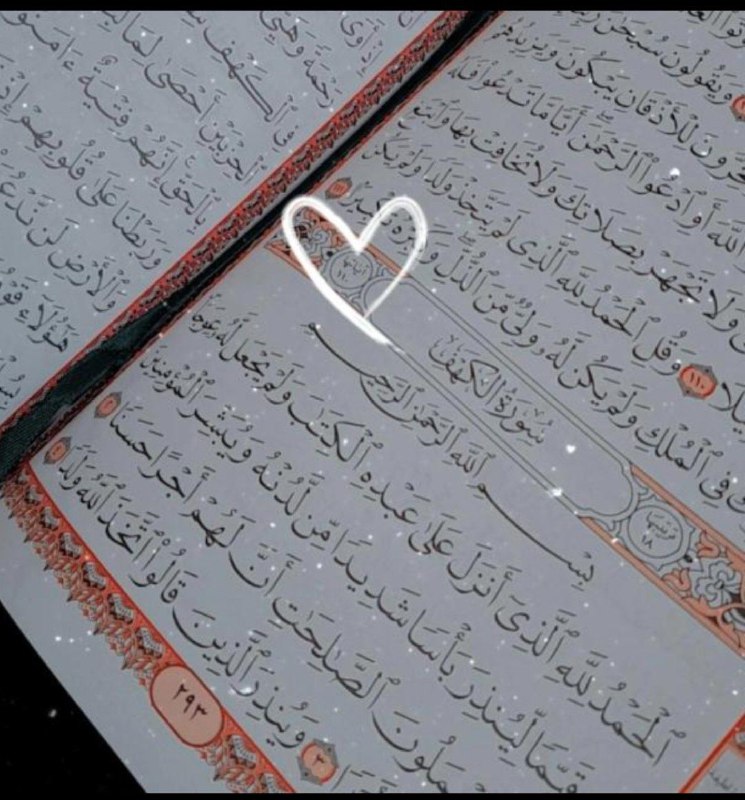 وَيَقُولُونَ سُبْحَٰنَ
يَخِرُّونَ لِلْأَذْقَانِ يَبْكُونَ وَيَزِيدُهُمْ
ٱللَّهَ أَوِ ٱدْعُوا۟ ٱلرَّحْمَٰنَ أَيًّا مَّا تَدْعُوا۟ فَلَهُ
وَلَا تَجْهَرْ بِصَلَاتِكَ وَلَا تُخَافِتْ بِهَا وَٱبْتَغِ
١١٠ وَقُلِ ٱلْحَمْدُ لِلَّهِ ٱلَّذِى لَمْ يَتَّخِذْ وَلَدًا وَلَمْ يَكُن
فِى ٱلْمُلْكِ وَلَمْ يَكُن لَّهُۥ وَلِىٌّ مِّنَ ٱلذُّلِّ وَكَبِّرْهُ تَكْبِيرًا ١١١
ترتيبها ١٨ سُورَةُ الكَهْفِ آياتها ١١٠
بِسْمِ ٱللَّهِ ٱلرَّحْمَٰنِ ٱلرَّحِيمِ
ٱلْحَمْدُ لِلَّهِ ٱلَّذِىٓ أَنزَلَ عَلَىٰ عَبْدِهِ ٱلْكِتَٰبَ وَلَمْ يَجْعَل لَّهُۥ عِوَجَا
قَيِّمًا لِّيُنذِرَ بَأْسًا شَدِيدًا مِّن لَّدُنْهُ وَيُبَشِّرَ ٱلْمُؤْمِنِينَ
يَعْمَلُونَ ٱلصَّٰلِحَٰتِ أَنَّ لَهُمْ أَجْرًا حَسَنًا ٢
٣ وَيُنذِرَ ٱلَّذِينَ قَالُوا۟ ٱتَّخَذَ ٱللَّهُ وَلَدًا ٤
٢٩٣
رَحْمَةً وَهَيِّئْ
ٱلْكَهْفِ
ٱلْحِزْبَيْنِ أَحْصَىٰ لِمَا
بِٱلْحَقِّ إِنَّهُمْ فِتْيَةٌ ءَامَنُوا۟
وَرَبَطْنَا عَلَىٰ قُلُوبِهِمْ إِذْ
وَٱلْأَرْضِ لَن نَّدْعُوَا۟
هَٰٓؤُلَآءِ